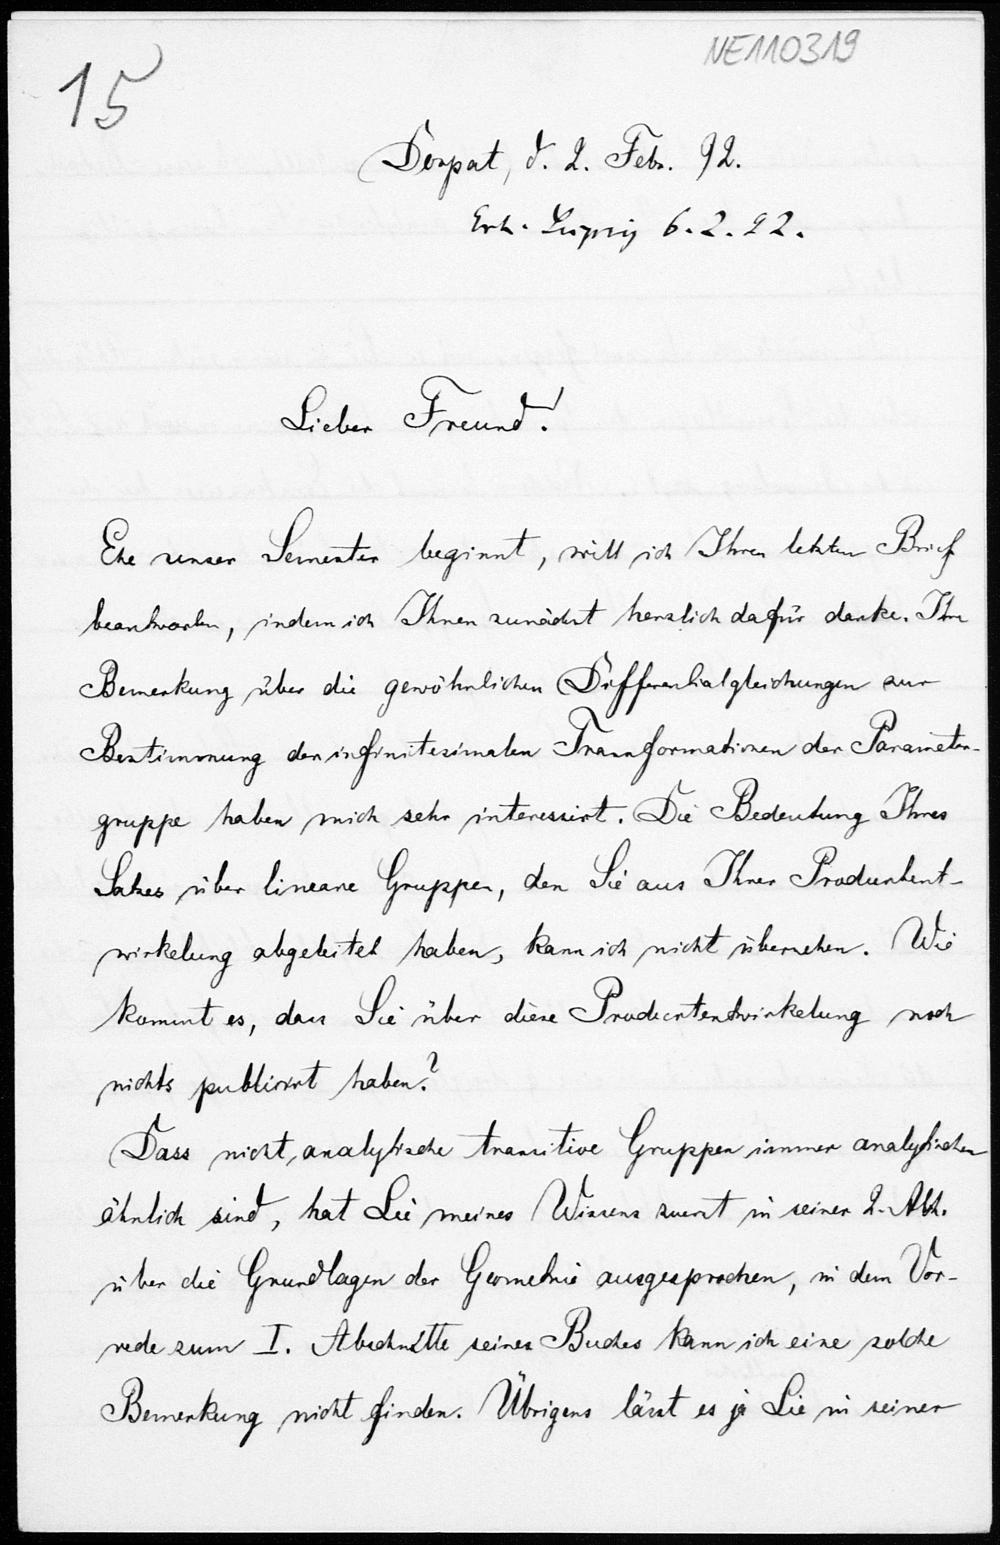 NE110319
15
Dorpat, d. 2. Febr. 92.
Erh. Leipzig 6.2.92.
Lieber Freund!
Ehe unser Semester beginnt, will ich Ihren letzten Brief
beantworten, indem ich Ihnen zunächst herzlich dafür danke. Ihre
Bemerkung über die gewöhnlichen Differentialgleichungen zur
Bestimmung der infinitesimalen Transformationen der Parameter-
gruppe haben mich sehr interessirt. Die Bedeutung Ihres
Satzes über lineare Gruppen, den Sie aus Ihrer Productent-
wickelung abgeleitet haben, kann ich nicht übersehen. Wie
kommt es, dass Sie über diese Productentwickelung noch
nichts publicirt haben?
Dass nicht analytische transitive Gruppen immer analytischen
ähnlich sind, hat Lie meines Wissens zuerst in seiner 2. Abh.
über die Grundlagen der Geometrie ausgesprochen, in dem Vor-
rede zum I. Abschnitte seines Buches kann ich eine solche
Bemerkung nicht finden. Übrigens lässt es ja Lie in seiner